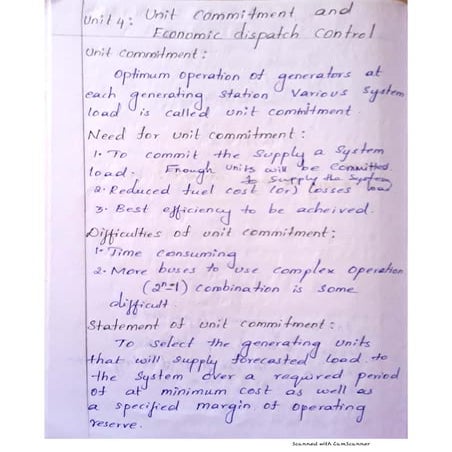 Unit 4: Unit Commitment and
Economic dispatch control
Unit Commitment:
Optimum operation of generators at
each generating Station Various System
load is called unit commitment.
Need for unit commitment:
1. To commit the Supply a System
load. Enough Units will be Committed
to Supply the System
2. Reduced fuel cost (or) losses load
3. Best efficiency to be acheived.
Difficulties of unit commitment:
1. Time consuming
2. More buses to use complex operation
(2^n-1) combination is some
difficult.
Statement of unit commitment:
To select the generating units
that will supply forecasted load to
the System over a required period
of at minimum cost as well as
a specified margin of operating
reserve.
Scanned with CamScanner